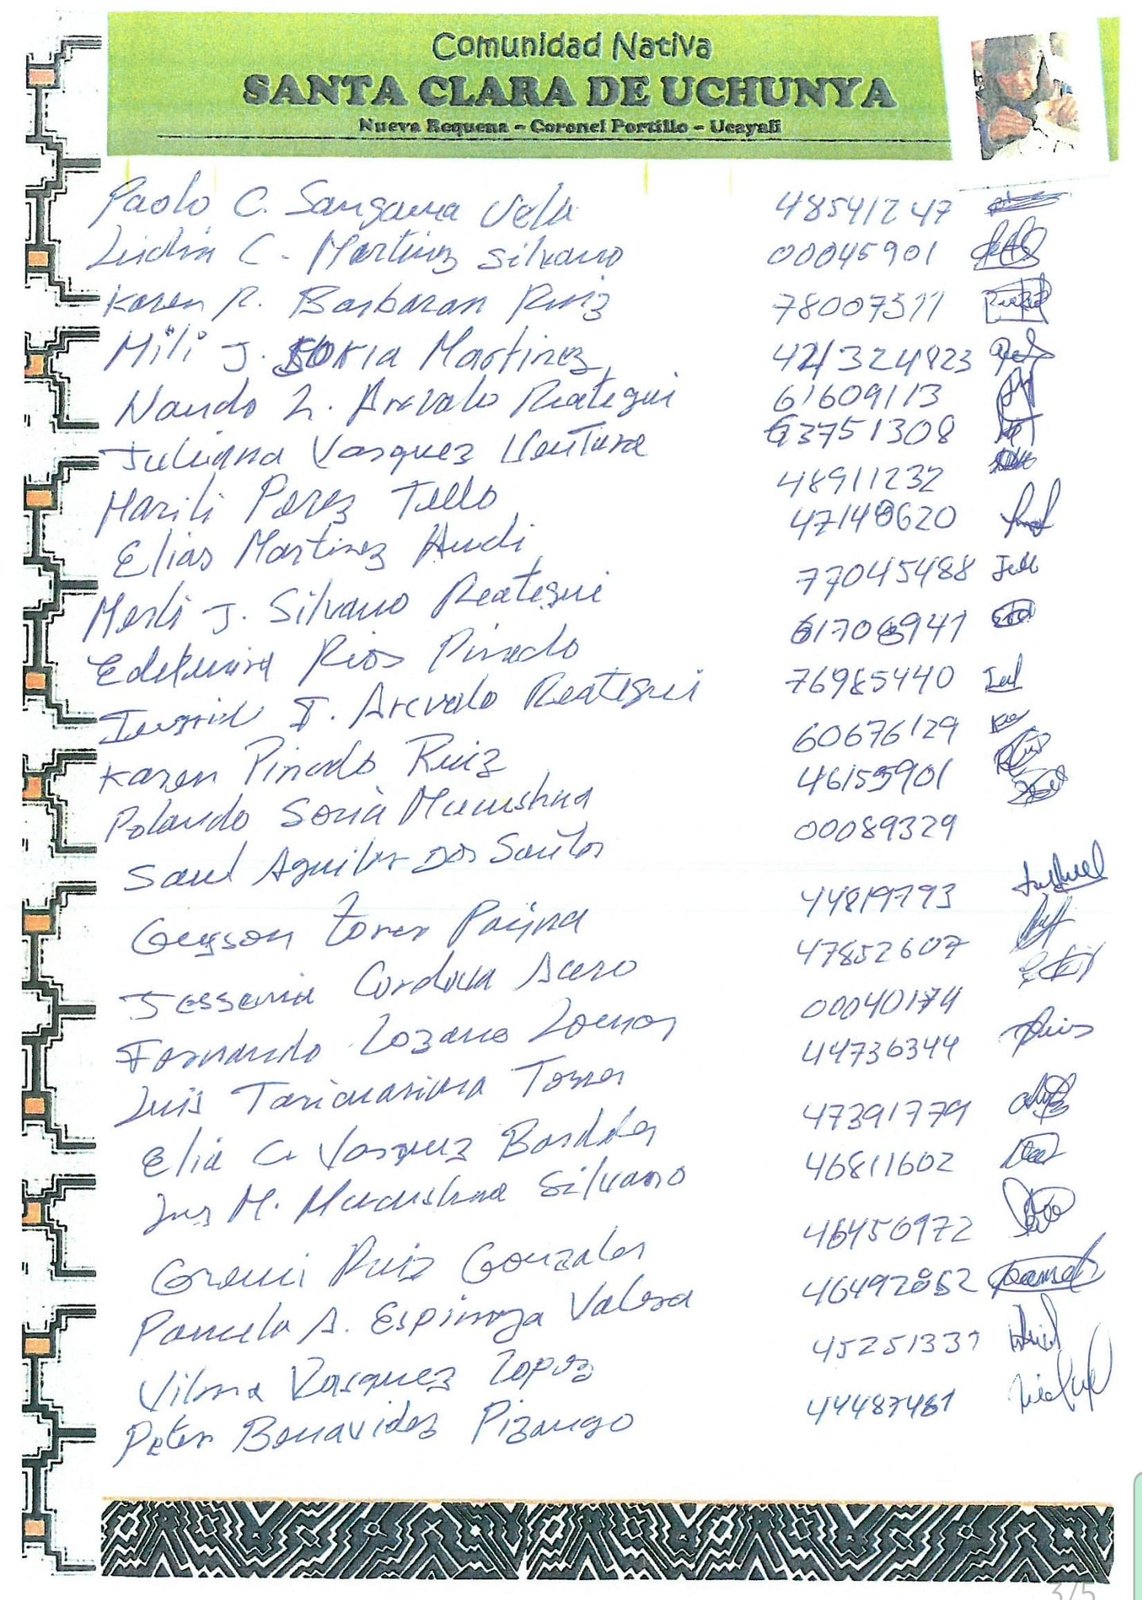 Comunidad Nativa
SANTA CLARA DE UCHUNYA
Nueva Requena - Coronel Portillo - Ucayali
Paolo C. Sangama Vela 48541247
C. Martinez Silvano 00045901
Karen R. Barbaran Ruiz 78007511
Mili J. Soria Martinez
Nando L. Arevalo Reategui 61609113
Juliana Vasquez Ventura 63751308
Marili Perez Tello 48911232
Elias Martinez Hudi 47148620
Merli J. Silvano Reategui 77045488
Rios Pinedo 61706941
Ingrid I. Arevalo Reategui 76985440
Karen Pinedo Ruiz 60676129
Rolando Soria Murushna 46155901
Saul Aguilar Dos Santos 00089329
Geyson Torres 44819793
Jessenia Cordova 47852607
Fernando Lozano Lomas 00040174
Luis Taricuarima Torres 44736344
Elia C. Vasquez Bardales 47391779
Luz M. Murushna Silvano 46811602
Gremi Ruiz Gonzales 46450972
Pamela A. Espinoza Valera
Vilma Vasquez Lopez 45251331
Peter Benavides Pizango 44487481
3/5